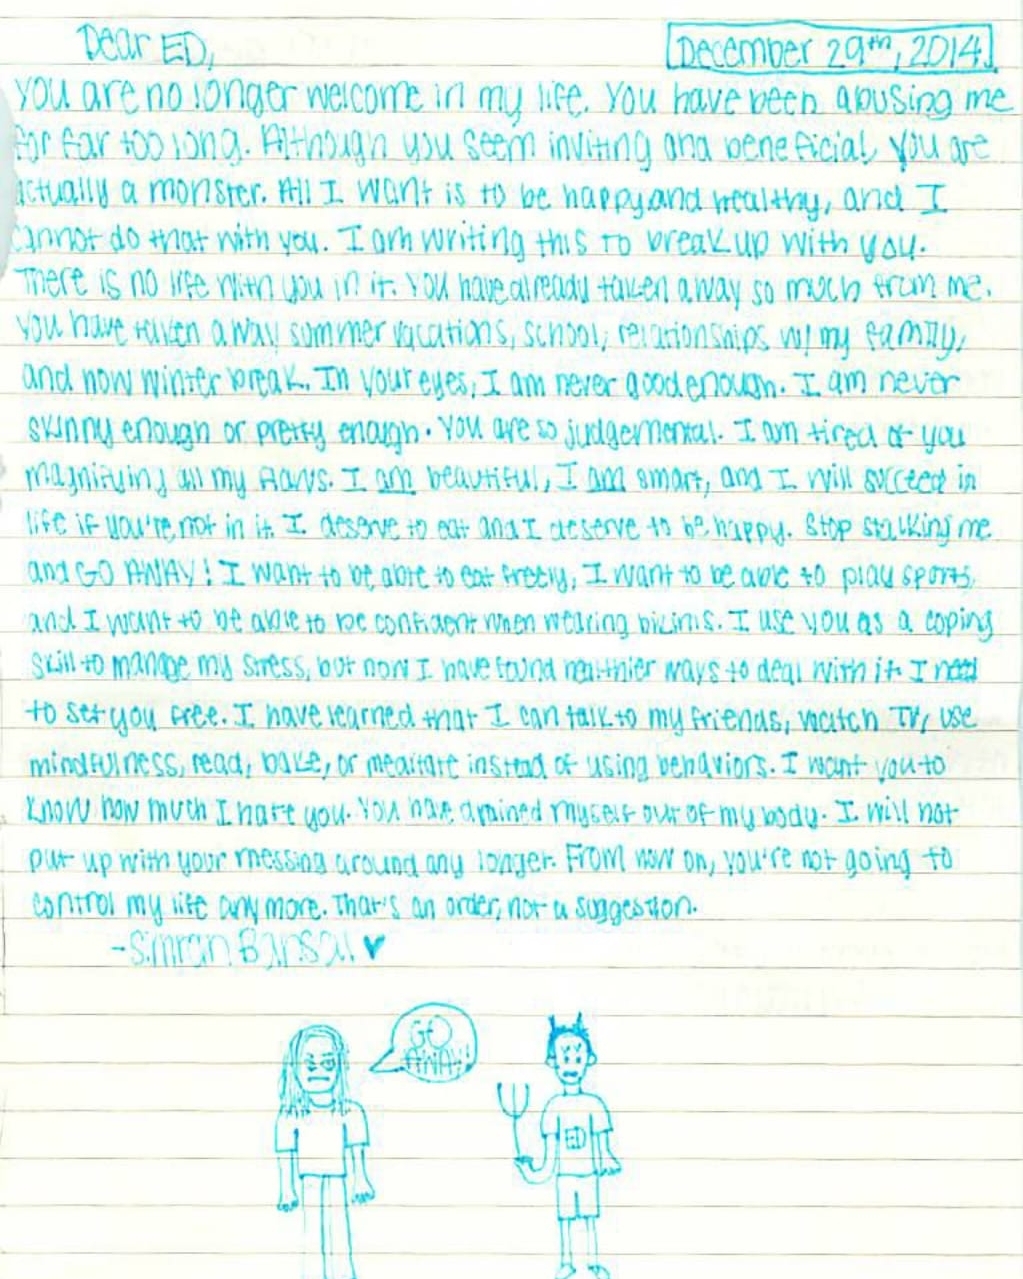 Dear ED,
December 29th, 2014
you are no longer welcome in my life. You have been abusing me
for far too long. Although you seem inviting and beneficial, you are
actually a monster. All I want is to be happy and healthy, and I
cannot do that with you. I am writing this to break up with you.
There is no life with you in it. You have already taken away so much from me.
You have taken away summer vacations, school, relationships w/ my family,
and now winter break. In your eyes, I am never good enough. I am never
skinny enough or pretty enough. You are so judgemental. I am tired of you
magnifying all my flaws. I am beautiful, I am smart, and I will succeed in
life if you're not in it. I deserve to eat and I deserve to be happy. Stop stalking me
and GO AWAY! I want to be able to eat freely, I want to be able to play sports,
and I want to be able to be confident when wearing bikinis. I use you as a coping
skill to manage my stress, but now I have found healthier ways to deal with it. I need
to set you free. I have learned that I can talk to my friends, watch TV, use
mindfulness, read, bake, or meditate instead of using behaviors. I want you to
know how much I hate you. You have drained myself out of my body. I will not
put up with your messing around any longer. From now on, you're not going to
control my life anymore. That's an order, not a suggestion.
-Simran Bansal ♥
GO
AWAY!
ED